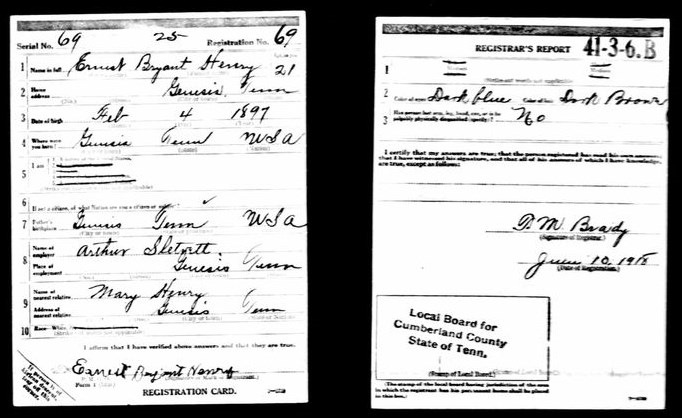 Serial No. 69 25 Registration No. 69
1 Name in full Ernest Bryant Henry 21
2 Home address Genesis Tenn
3 Date of birth Feb 4 1897
4 Where were you born? Genesis Tenn USA
5 I am
6
7 Father's birthplace Genesis Tenn USA
8 Name of employer Arthur
Place of employment Genesis Tenn
9 Name of nearest relative Mary Henry
Address of nearest relative Genesis Tenn
10 Race—White
I affirm that I have verified above answers and that they are true.
Earnest Bryant Henry
REGISTRATION CARD.
REGISTRAR'S REPORT 41-3-6.B
1
2 Color of eyes Dark blue Color of hair Dark Brown
3 Has person lost arm, leg, hand, eye, or is he palpably physically disqualified (specify)? No
I certify that my answers are true; that the person registered has read his own answers;
that I have witnessed his signature, and that all of his answers of which I have knowledge
are true, except as follows:
M. Brady
(Signature of Registrar)
June 10, 1918
(Date of Registration)
Local Board for
Cumberland County
State of Tenn.
(Stamp of Local Board)
(The stamp of the local board having jurisdiction of the area
in which the registrant has his permanent home shall be placed
in this box.)